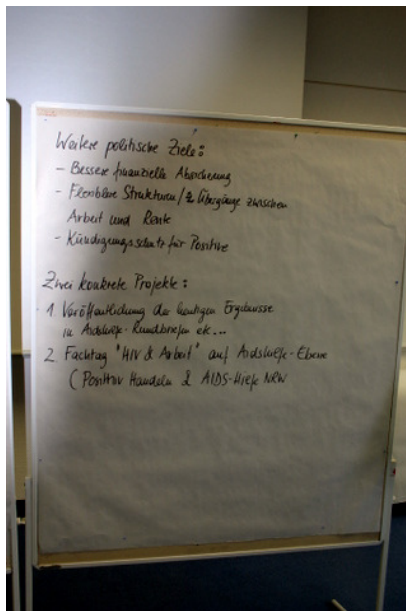 Weitere politische Ziele:
- Bessere finanzielle Absicherung
- Flexible Strukturen / Übergänge zwischen
Arbeit und Rente
- Kündigungsschutz für Positive
Zwei konkrete Projekte:
1. Veröffentlichung der heutigen Ergebnisse
in Aidshilfe-Rundbriefen etc...
2. Fachtag "HIV & Arbeit" auf Aidshilfe-Ebene
(Positiv Handeln & AIDS-Hilfe NRW